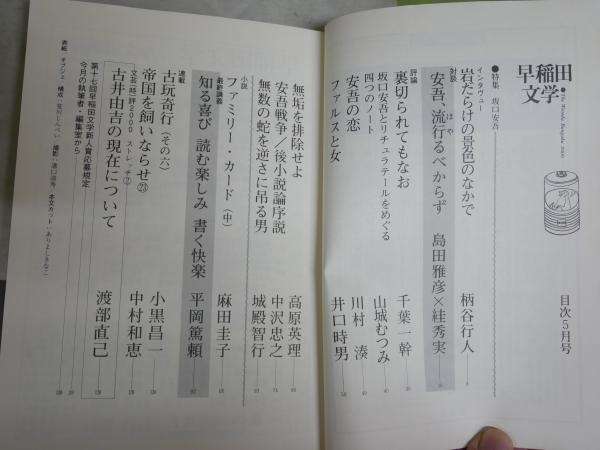 早稲田文学
The Waseda Bungaku 2000
目次 5月号
●特集 坂口安吾
インタヴュー
岩だらけの景色のなかで 柄谷行人
対談
安吾、流行るべからず 島田雅彦×絓秀実
はや
評論
裏切られてもなお 千葉一幹
坂口安吾とリチュラテールをめぐる四つのノート 山城むつみ
安吾の恋 川村湊
ファルスと女 井口時男
無垢を排除せよ 高原英理
安吾戦争/後小説論序説 中沢忠之
無数の蛇を逆さに吊る男 城殿智行
小説
ファミリー・カード(中) 麻田圭子
最終講義
知る喜び 読む楽しみ 書く快楽 平岡篤頼
連載
古玩奇行(その六) 小黒昌一
帝国を飼いならせ㉓ 中村和恵
文芸〈時〉評2000 ストレッチ⑦
古井由吉の現在について 渡部直己
第十七回早稲田文学新人賞応募規定
今月の執筆者・編集室から